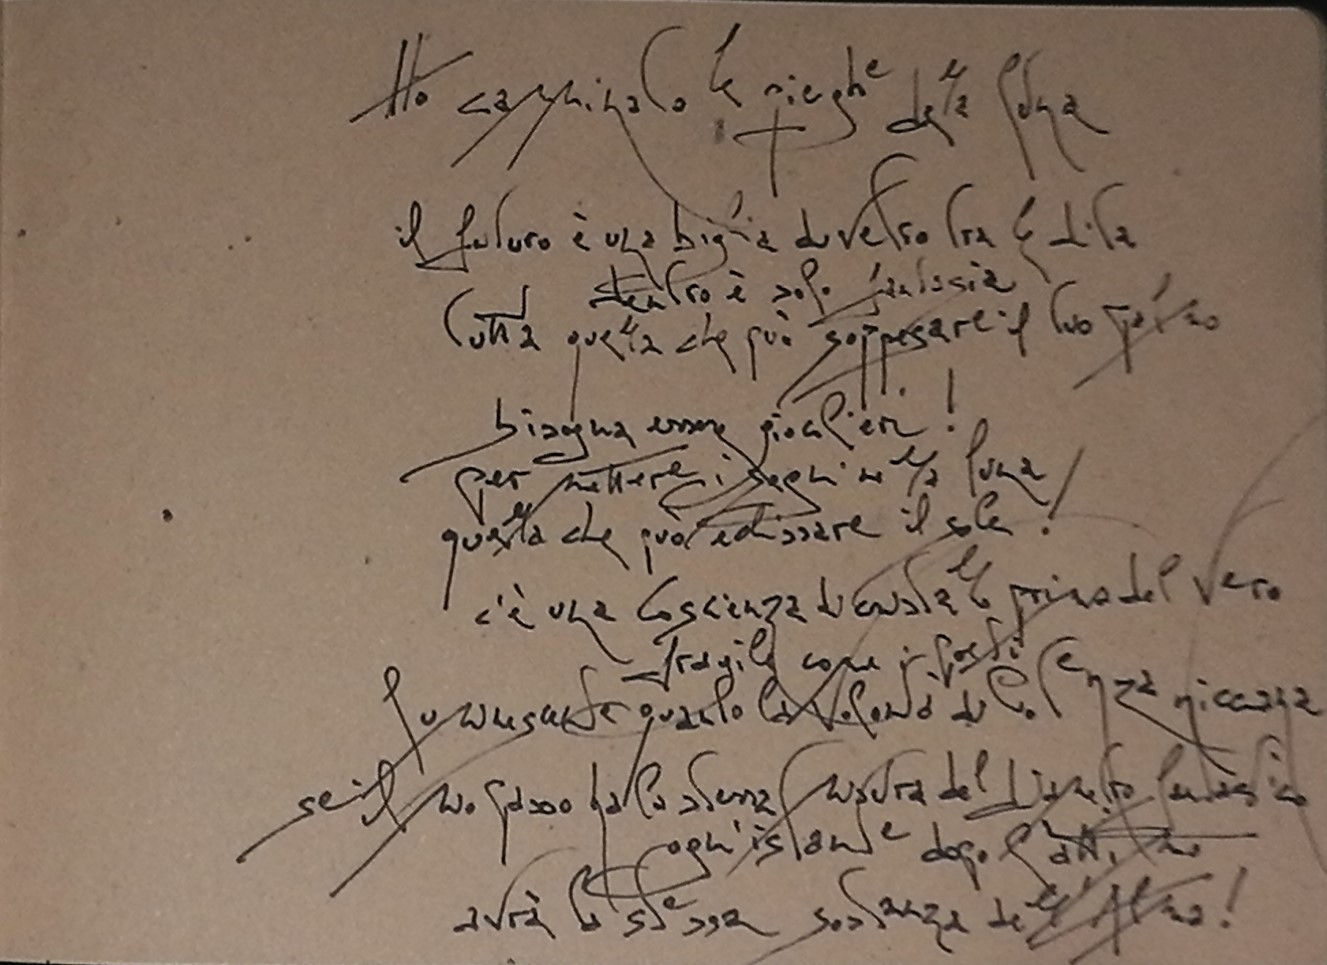 Ho camminato le pieghe della luna
il futuro è una biglia di vetro tra le dita
dentro è solo fantasia
tutta quella che può soppesare il tuo palmo
bisogna essere giocolieri!
per mettere i segni nella luna
quella che può eclissare il sole!
c'è una coscienza di cristallo prima del vero
fragile come i
quanto la volontà di
se il tuo passo ha la stessa misura del
ogni istante dopo l'attimo
avrà la stessa sostanza dell'Alma!